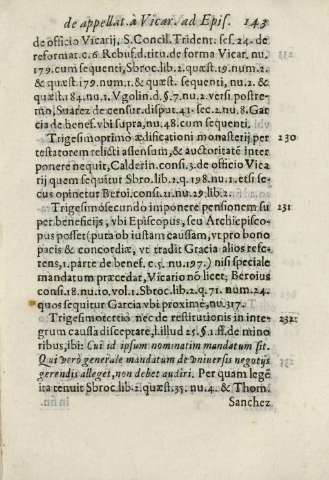 de appellat. à Vicar. ad Epis. 143
de officio Vicarij, S. Concil. Trident. ses. 24. de
reformat. c. 6 Rebuf. d. titu. de forma Vicar. nu.
179. cum sequenti, Sbroc. lib. 2. quæst. 19. num. 2.
& quæst. 179. num. 1. & quæst. sequenti, nu. 2. &
quæst. 184. nu. 1. Vgolin. d. §. 7. nu. 2. vers. postre-
mo, Suarez de censur. disput. 41. sec. 2. nu. 8. Gar
cia de benef. vbi supra, nu. 48. cum sequenti.
Trigesimoprimò ædificationi monasterij, per
testatorem relicti assensum, & auctoritatē inter
ponere nequit, Calderin. consi. 3. de officio Vica
rij quem sequitur Sbro. lib. 2. q. 198. nu. 1. etsi se-
cus opinetur Beroi. consi. 21. nu. 29. lib. 2.
230
Trigesimosecundo imponere pensionem su
per beneficijs, vbi Episcopus, seu Archiepisco-
pus posset (puta ob iustam caussam, vt pro bono
pacis & concordiæ, vt tradit Gracia alios refe-
rens, 1. parte de benef. c. 5. nu. 197.) nisi speciale
mandatum præcedat, Vicario nō licet; Beroius
consi. 18. nu. 10. vol. 1. Sbroc. lib. 2. q. 71. num. 24.
quos sequitur Garcia vbi proximè, nu. 317.
231
Trigesimotertiò nec de restitutionis in inte-
grum caussa disceptare, l. illud 25. §. 1. ff. de mino
ribus, ibi: Cui id ipsum nominatim mandatum sit.
Qui verò generale mandatum de vniversis negotijs
gerendis alleget, non debet audiri. Per quam legē
ita tenuit Sbroc. lib. 2. quæst. 35. nu. 4. & Thom.
232
Sanchez